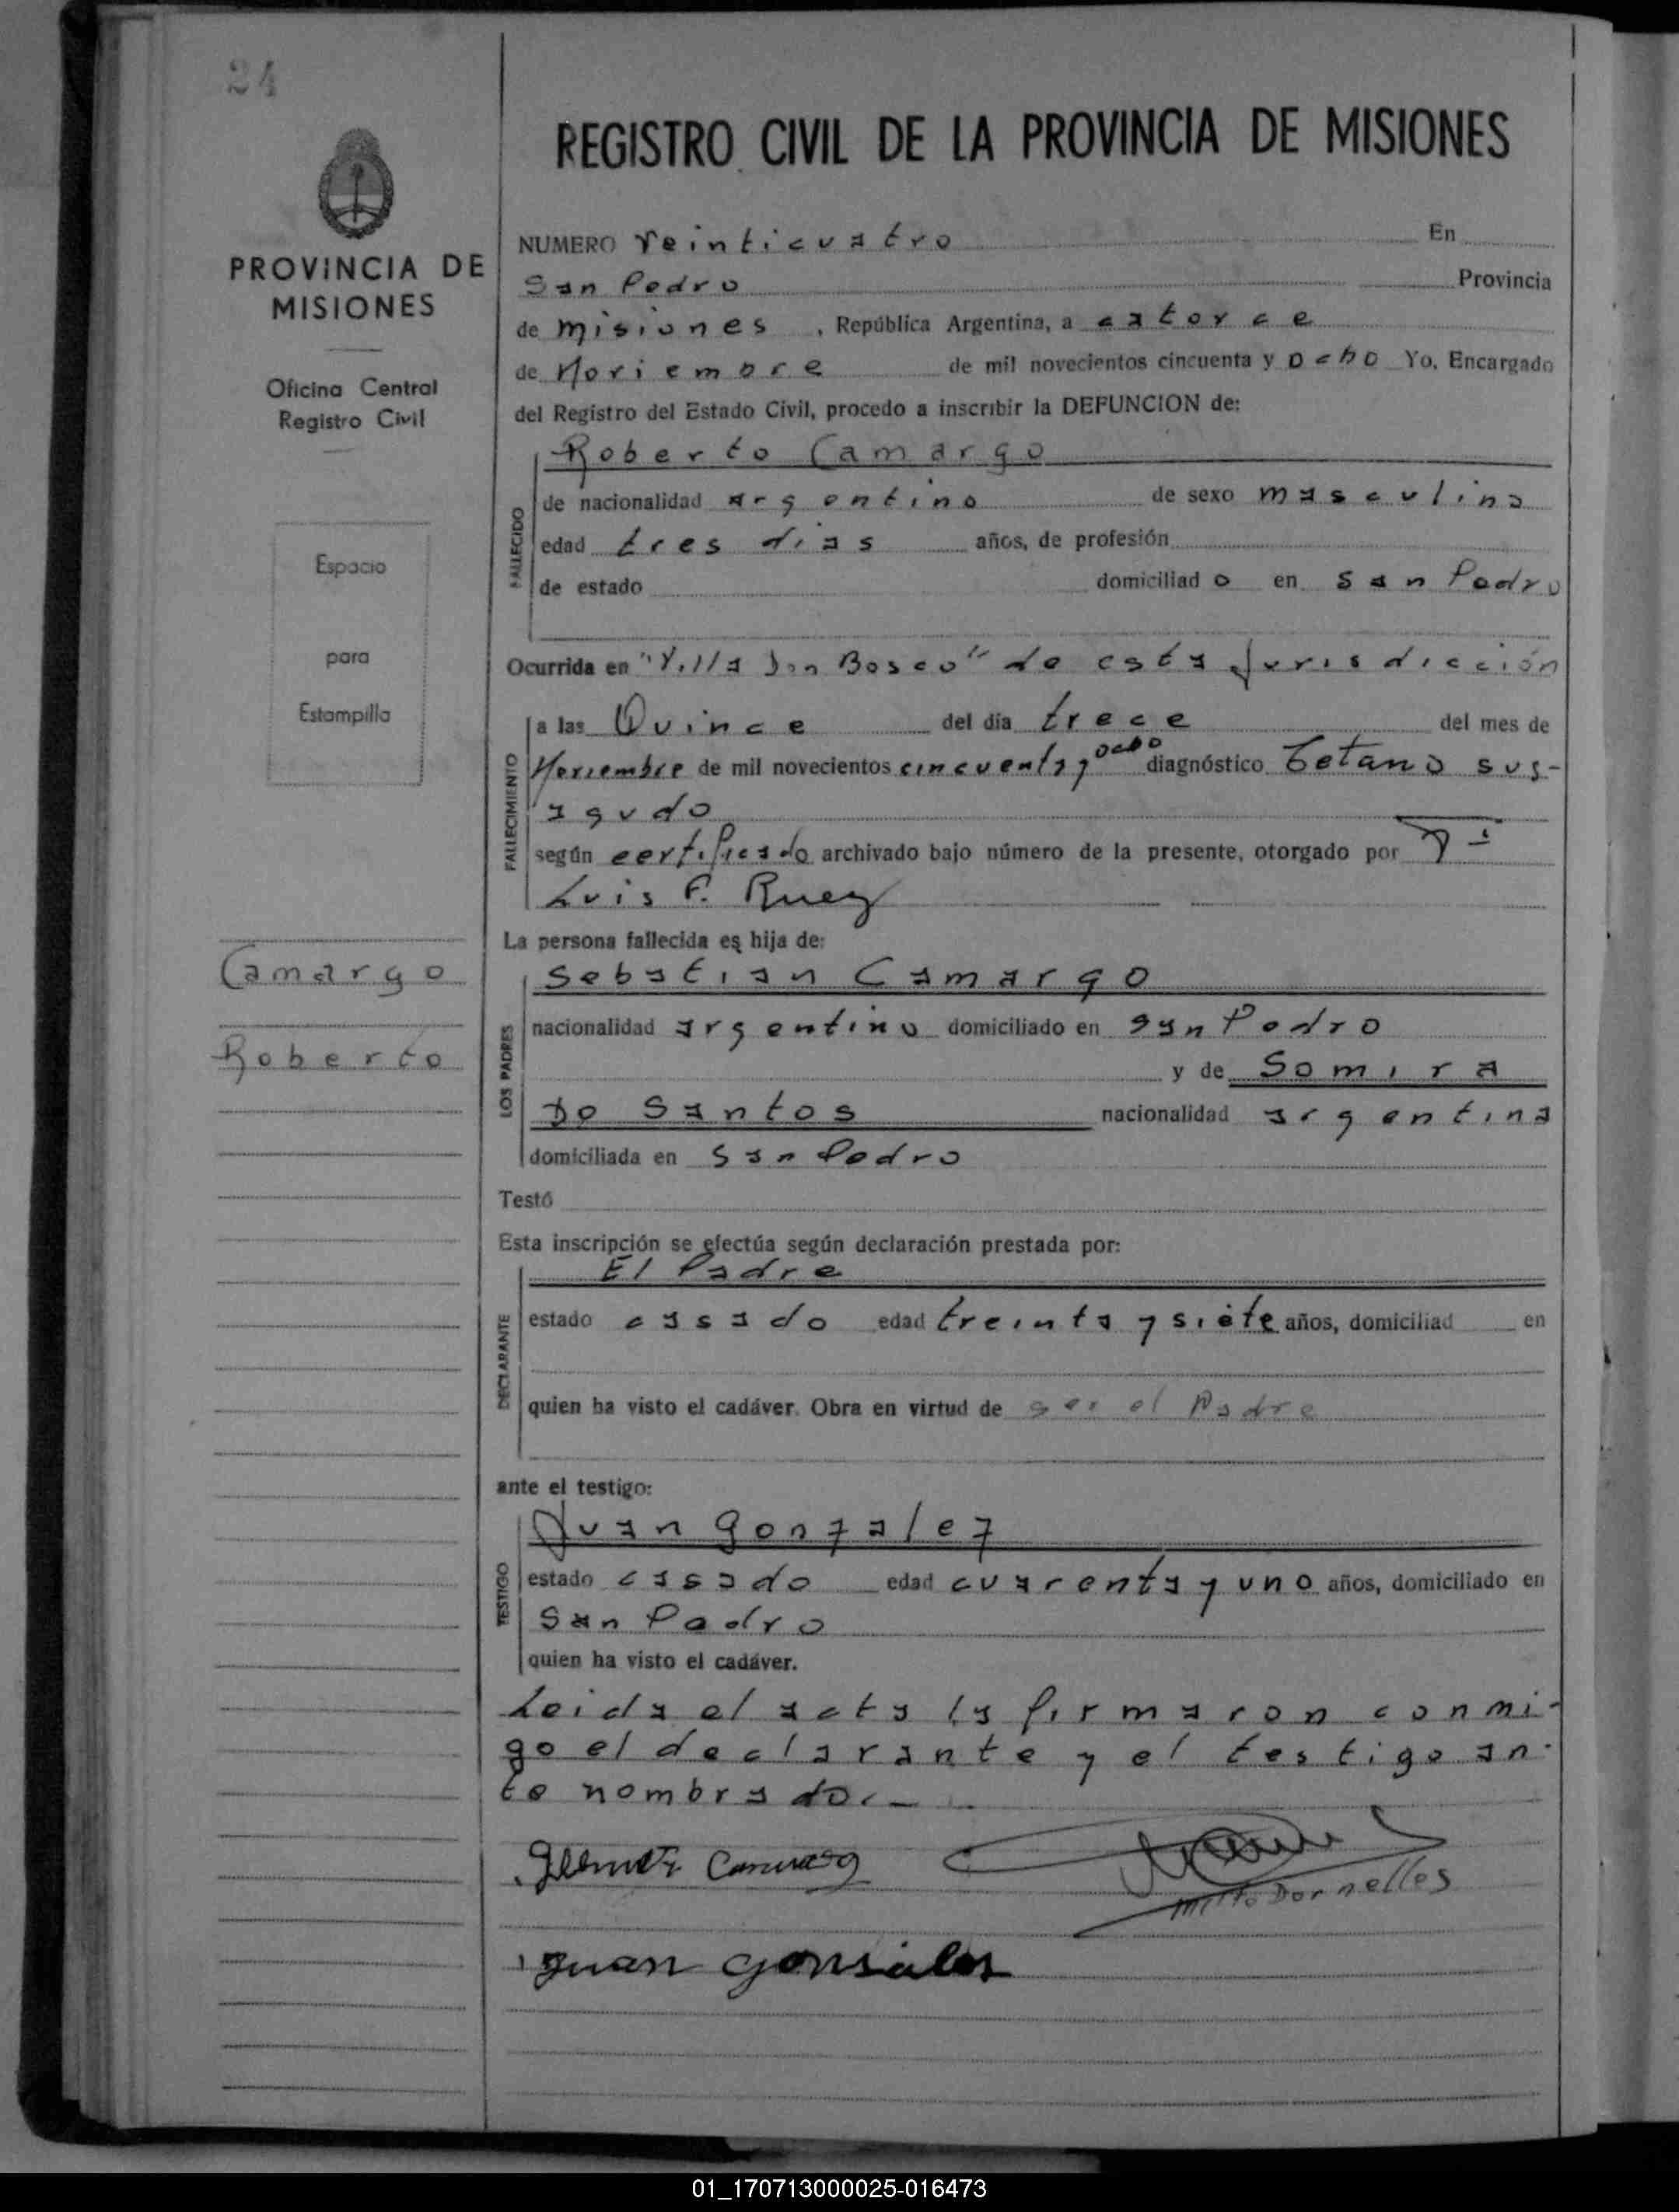 24
PROVINCIA DE
MISIONES
Oficina Central
Registro Civil
Espacio
para
Estampilla
Camargo
Roberto
REGISTRO CIVIL DE LA PROVINCIA DE MISIONES
NUMERO Veinticuatro En
San Pedro Provincia
de Misiones, República Argentina, a catorce
de Noviembre de mil novecientos cincuenta y ocho Yo, Encargado
del Registro del Estado Civil, procedo a inscribir la DEFUNCION de:
Roberto Camargo
FALLECIDO
de nacionalidad argentino de sexo masculino
edad tres dias años, de profesión
de estado domiciliado en San Pedro
Ocurrida en "Villa Don Bosco" de esta Jurisdicción
FALLECIMIENTO
a las Quince del día trece del mes de
Noviembre de mil novecientos cincuenta y ocho diagnóstico Tetano sus-
agudo
según certificado archivado bajo número de la presente, otorgado por
Luis F.
La persona fallecida es hija de:
LOS PADRES
Sebastian Camargo
nacionalidad argentino domiciliado en San Pedro
y de Somira
Do Santos nacionalidad argentina
domiciliada en San Pedro
Testó
Esta inscripción se efectúa según declaración prestada por:
DECLARANTE
El Padre
estado casado edad treinta y siete años, domiciliad en
quien ha visto el cadáver. Obra en virtud de ser el Padre
ante el testigo:
TESTIGO
Juan Gonzalez
estado casado edad cuarenta y uno años, domiciliado en
San Pedro
quien ha visto el cadáver.
Leida el acta la firmaron conmi-
go el declarante y el testigo an-
te nombrado.-
Milto Dornelles
Juan Gonsales
01_170713000025-016473